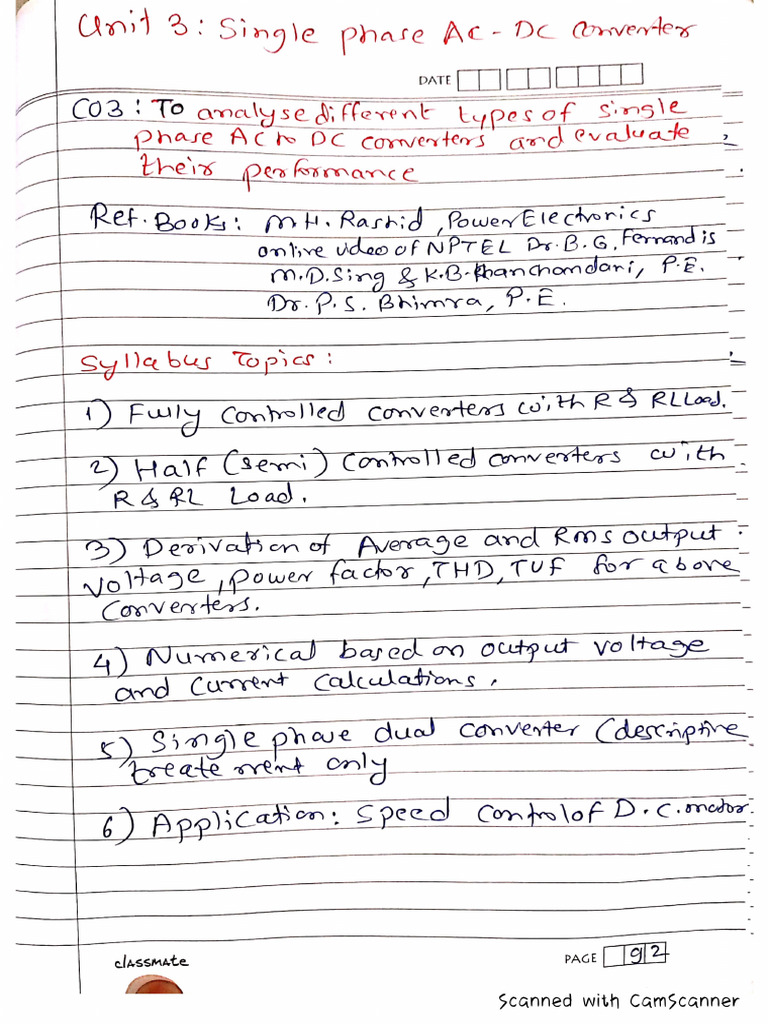 Unit 3: Single phase AC - DC converter
DATE
CO3: To analyse different types of single
phase AC to DC converters and evaluate
their performance
Ref. Books: M.H. Rashid, Power Electronics
online video of NPTEL Dr. B. G. Fernandis
M.D. Sing & K.B. Khanchandani, P.E.
Dr. P. S. Bhimra, P.E.
Syllabus Topics:
1) Fully Controlled converters with R & RL Load.
2) Half (semi) Controlled converters with
R & RL Load.
3) Derivation of Average and Rms output
voltage, power factor, THD, TUF for above
Converters.
4) Numerical based on output voltage
and Current Calculations.
5) Single phase dual converter (descriptive
treatement only
6) Application: Speed Control of D.C. motor.
classmate
PAGE 92
Scanned with CamScanner